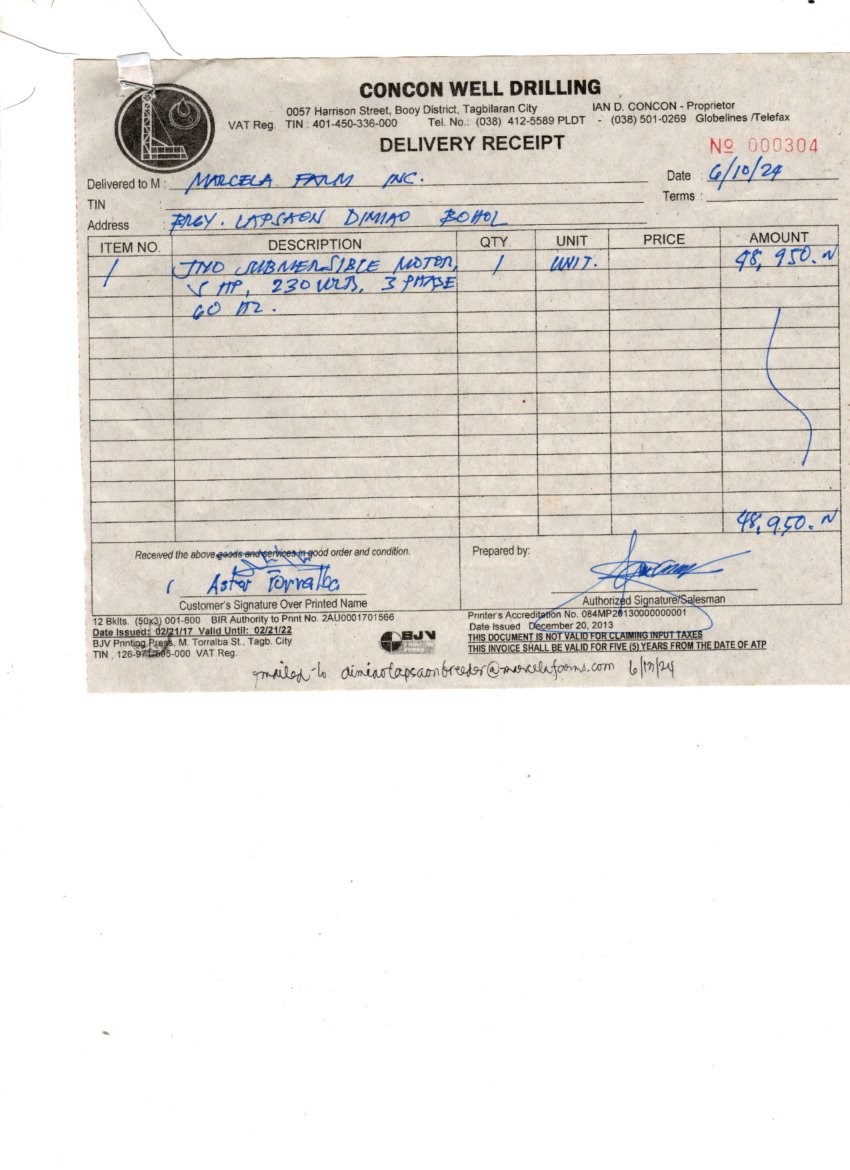 CONCON WELL DRILLING
0057 Harrison Street, Booy District, Tagbilaran City IAN D. CONCON - Proprietor
VAT Reg. TIN : 401-450-336-000 Tel. No.: (038) 412-5589 PLDT - (038) 501-0269 Globelines /Telefax
DELIVERY RECEIPT
Nº 000304
Delivered to M : MARCELA FARM INC. Date : 6/10/24
TIN : Terms :
Address BRGY. LAPSAON DIMIAO BOHOL
ITEM NO. DESCRIPTION QTY. UNIT PRICE AMOUNT
1 SUBMERSIBLE MOTOR, 1 UNIT. 48,950.
5 HP, 230 VOLTS, 3 PHASE
60 HZ.
48,950.
Received the above goods and services in good order and condition. Prepared by:
Aster Torralba
Customer's Signature Over Printed Name Authorized Signature/Salesman
12 Bklts. (50x3) 001-600 BIR Authority to Print No. 2AU0001701566
Date Issued: 02/21/17 Valid Until: 02/21/22
BJV Printing Press, M. Torralba St., Tagb. City
TIN , 126-971-595-000 VAT Reg.
BJV
Printer's Accreditation No. 084MP20130000000001
Date Issued December 20, 2013
THIS DOCUMENT IS NOT VALID FOR CLAIMING INPUT TAXES
THIS INVOICE SHALL BE VALID FOR FIVE (5) YEARS FROM THE DATE OF ATP
mailed to dimiaolapsaonbreeder@marcelafarms.com 6/17/24